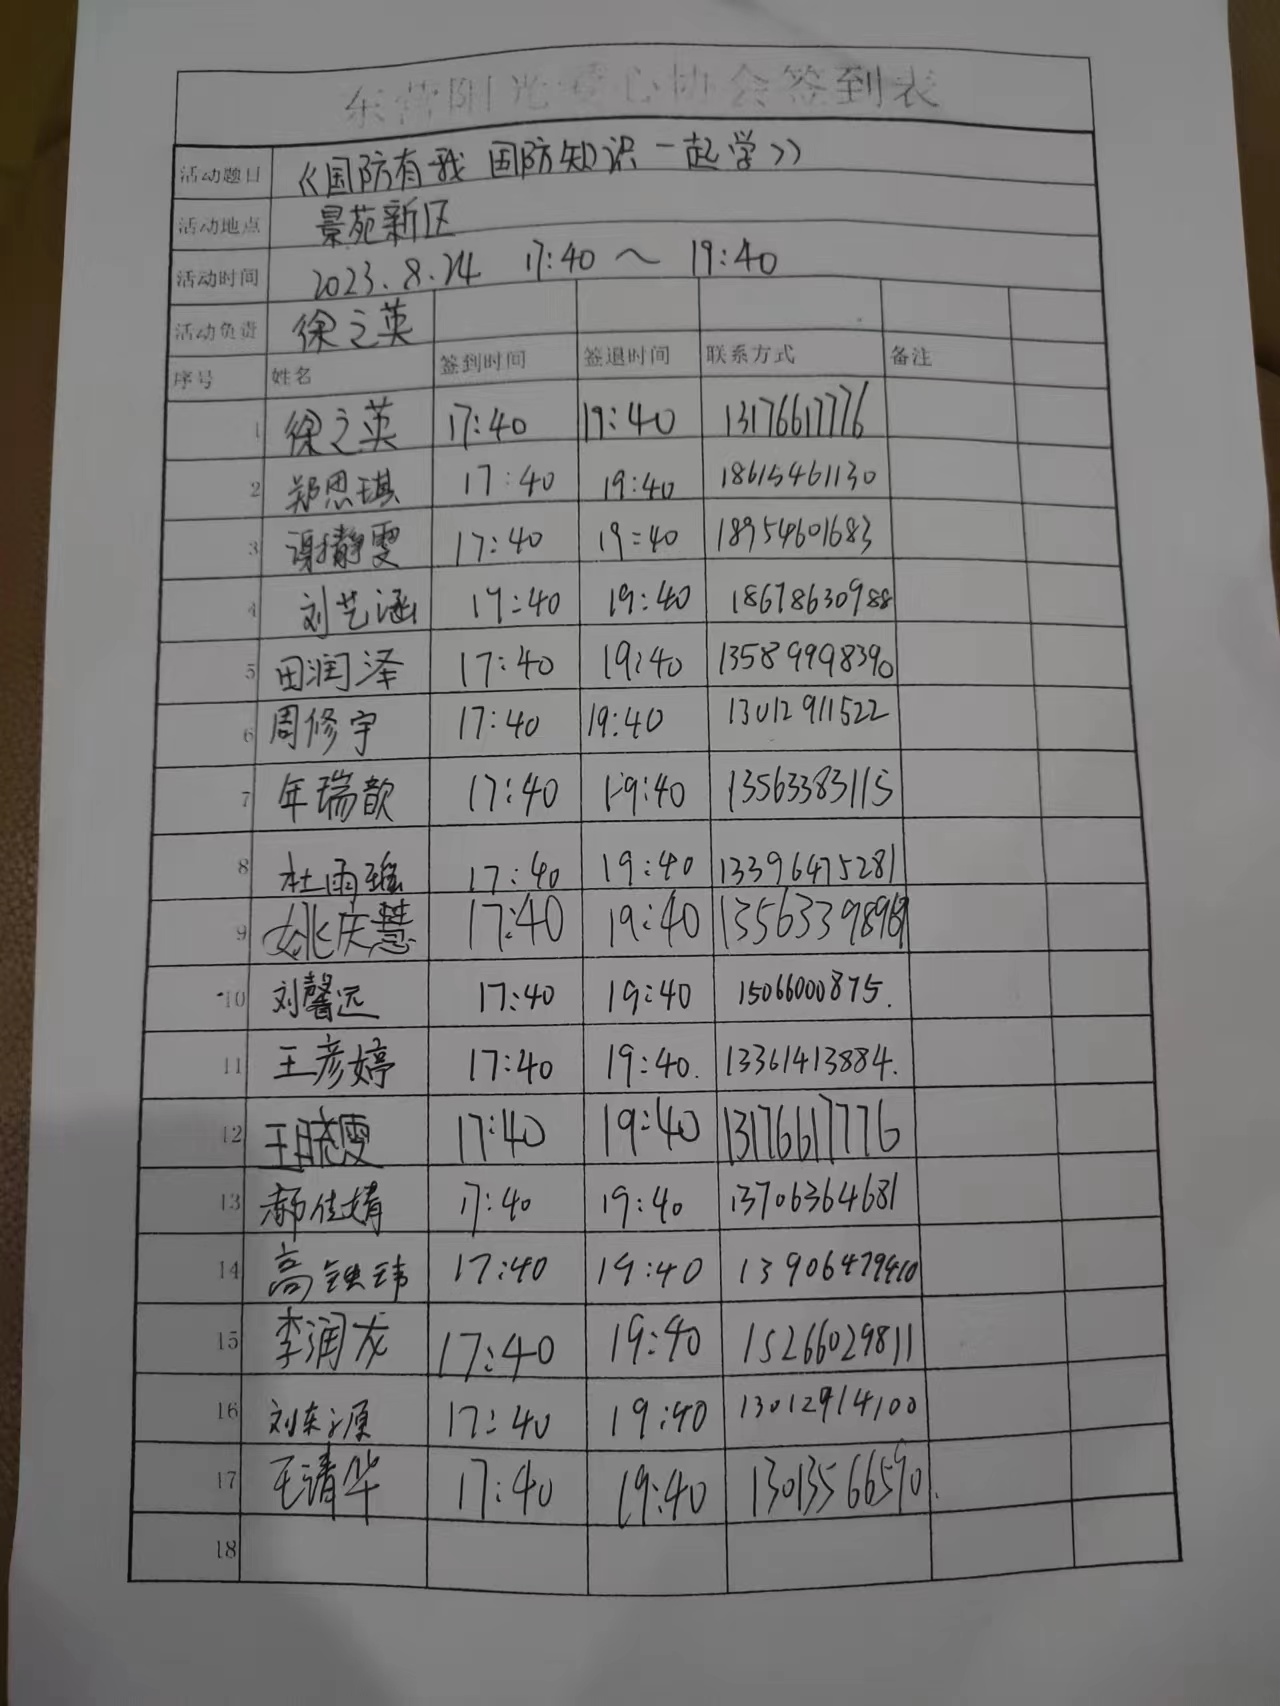 东营阳光爱心协会签到表
活动题目 《国防有我 国防知识一起学》
活动地点 景苑新区
活动时间 2023.8.24 17:40～19:40
活动负责 徐之英
序号 姓名 签到时间 签退时间 联系方式 备注
1 徐之英 17:40 19:40 13176617776
2 郑思琪 17:40 19:40 18615461130
3 谢静雯 17:40 19:40 18954601683
4 刘艺涵 17:40 19:40 18678630988
5 田润泽 17:40 19:40 13589998390
6 周修宇 17:40 19:40 13012911522
7 年瑞歆 17:40 19:40 13563383115
8 杜雨瑶 17:40 19:40 13396475281
9 姚庆慧 17:40 19:40
10 刘馨远 17:40 19:40 15066000875.
11 王彦婷 17:40 19:40. 13361413884.
12 王晓雯 17:40 19:40 13176617776
13 郝佳婧 17:40 19:40 13706364681
14 高 17:40 19:40 13906479410
15 李润龙 17:40 19:40 15266029811
16 刘东源 17:40 19:40 13012914100
17 王清华 17:40 19:40 13013566590
18